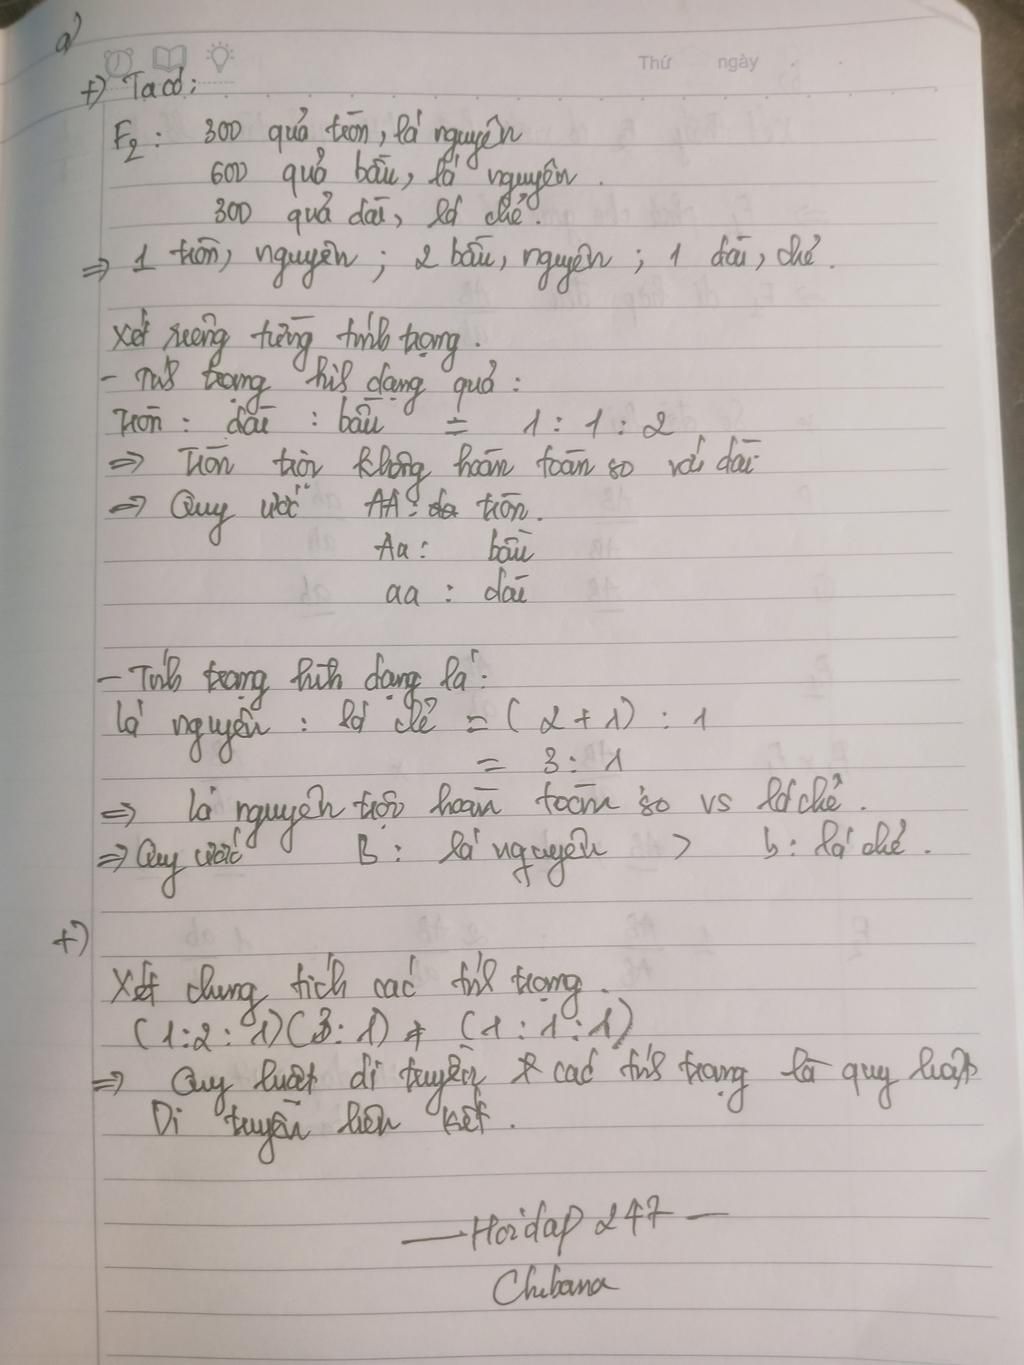 a)
Thứ ngày
+) Ta có:
F2: 300 quả tròn, lá nguyên
600 quả bầu, lá nguyên.
300 quả dài, lá chẻ.
=> 1 tròn, nguyên; 2 bầu, nguyên; 1 dài, chẻ.
Xét riêng từng tính trạng.
- Tính trạng hình dạng quả:
Tròn : dài : bầu = 1:1:2
=> Tròn trội không hoàn toàn so với dài
=> Quy ước AA: tròn.
Aa: bầu
aa: dài
- Tính trạng hình dạng lá:
lá nguyên : lá chẻ = (2+1) : 1
= 3:1
=> lá nguyên trội hoàn toàn so vs lá chẻ.
=> Quy ước B: lá nguyên > b: lá chẻ.
+)
Xét chung tích các tính trạng.
(1:2:1)(3:1) ≠ (1:1:1)
=> Quy luật di truyền các tính trạng là quy luật
Di truyền liên kết.
— Hoidap 247 —
Chibana